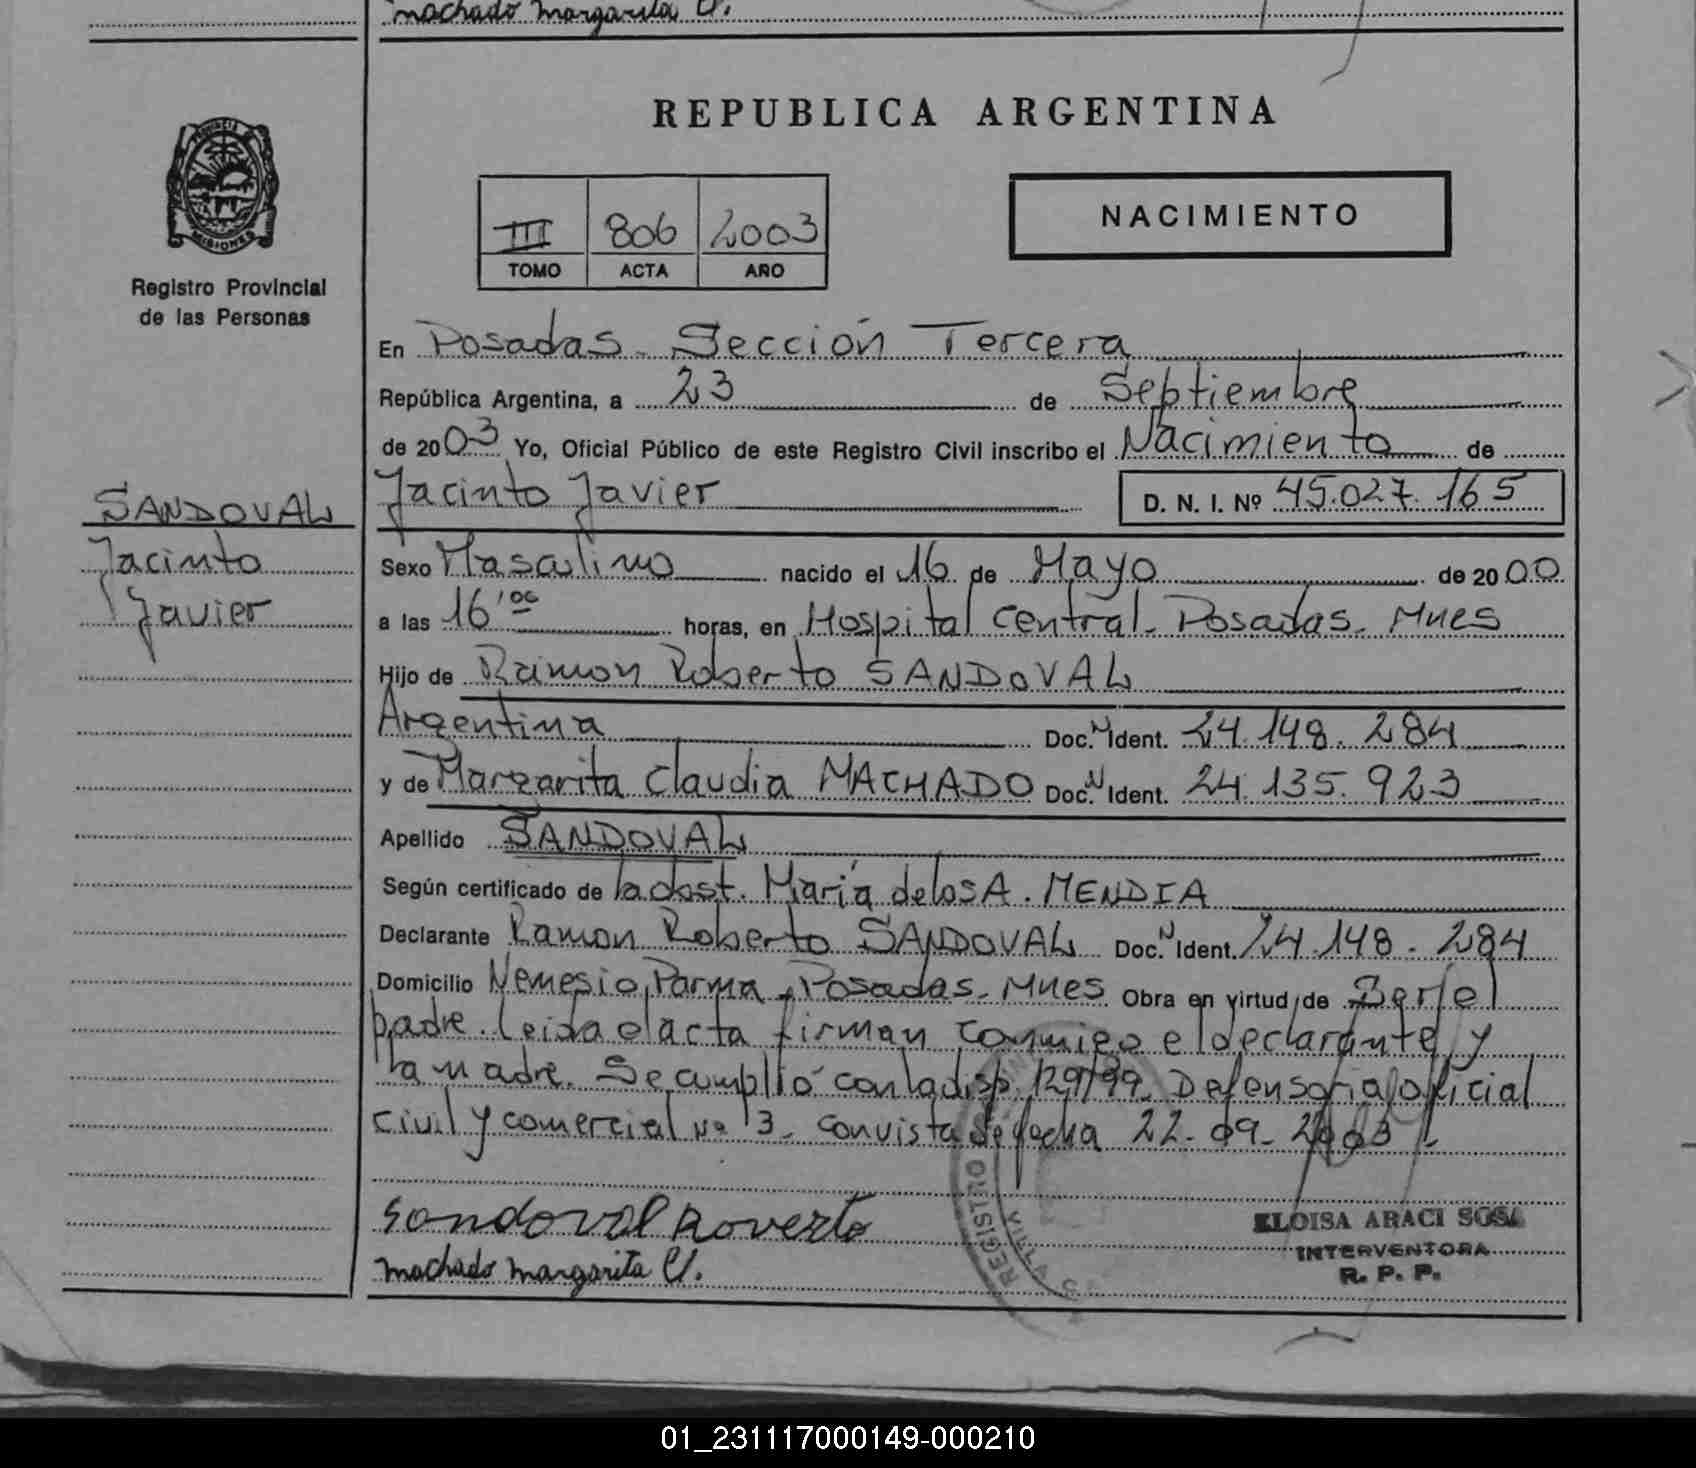 Machado Margarita Cl.
REPUBLICA ARGENTINA
PROVINCIA DE
MISIONES
III 806 2003
TOMO ACTA AÑO
NACIMIENTO
Registro Provincial
de las Personas
En Posadas. Sección Tercera
República Argentina, a 23 de Septiembre
de 2003 Yo, Oficial Público de este Registro Civil inscribo el Nacimiento de
Jacinto Javier D. N. I. Nº 45.027.165
SANDOVAL
Jacinto
Javier
Sexo Masculino nacido el 16 de Mayo de 2000
a las 16'00 horas, en Hospital Central. Posadas. Mnes
Hijo de Ramon Roberto SANDOVAL
Argentina Doc. N Ident. 24.148.284
y de Margarita Claudia MACHADO Doc. N Ident. 24.135.923
Apellido SANDOVAL
Según certificado de la obst. María de los A. MENDIA
Declarante Ramon Roberto SANDOVAL Doc. N Ident. 24.148.284
Domicilio Nemesio Parma. Posadas. Mnes Obra en virtud de Ser el
padre. Leida el acta firman conmigo el declarante y
la madre. Se cumplió con la disp. 129/99. Defensoria oficial
civil y comercial Nº 3. con vista de fecha 22-09-2003
Sandoval Roverto
Machado Margarita Cl.
REGISTRO
ELOISA ARACI SOSA
INTERVENTORA
R. P. P.
01_231117000149-000210